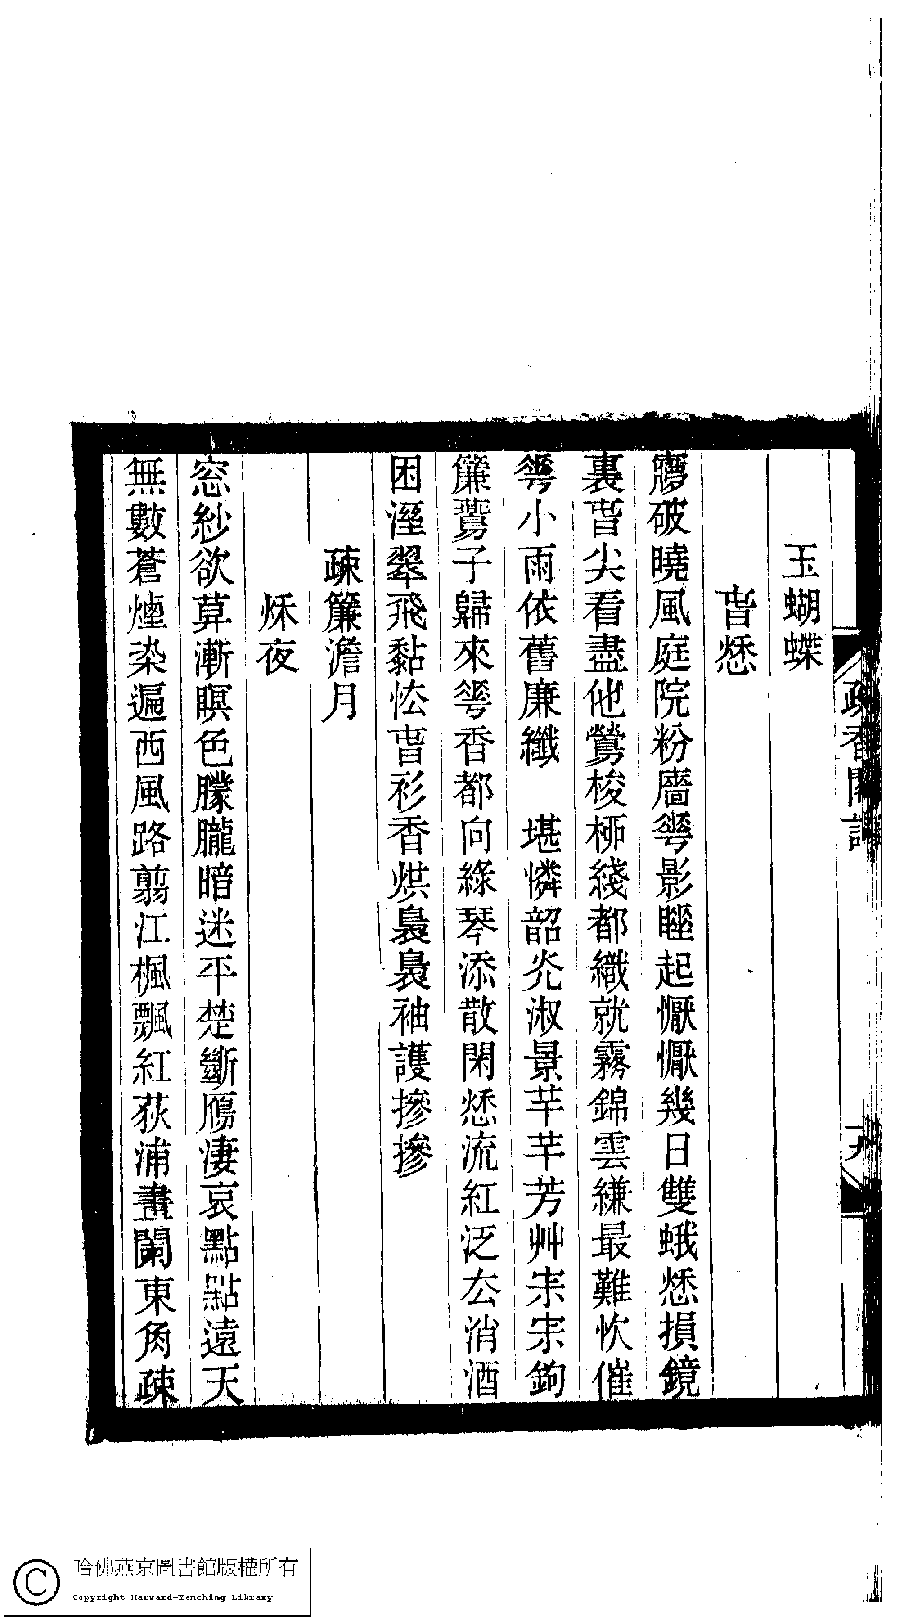 玉蝴蝶
旾愁
㝱破曉風庭院粉廧蕐影睡起懨懨幾日雙蛾愁損鏡
裏旾尖看盡他鶯梭桺綫都織就霧錦雲縑最難忺催
蕐小雨依舊廉纖　堪憐韶灮淑景芊芊芳艸宗宗鉤
簾鷰子歸來蕐香都向綠琴添散閑愁流紅泛厺消酒
困溼翠飛黏恡旾衫香烘裊裊袖護摻摻
疎簾澹月
秌夜
窓紗欲莫漸暝色朦朧暗迷平楚斷鴈淒哀點點遠天
無數蒼煙染遍西風路翦江楓飄紅荻浦畫闌東角疎
疎香閣詞
哈佛燕京圖書館版權所有
Copyright Harvard-Yenching Library